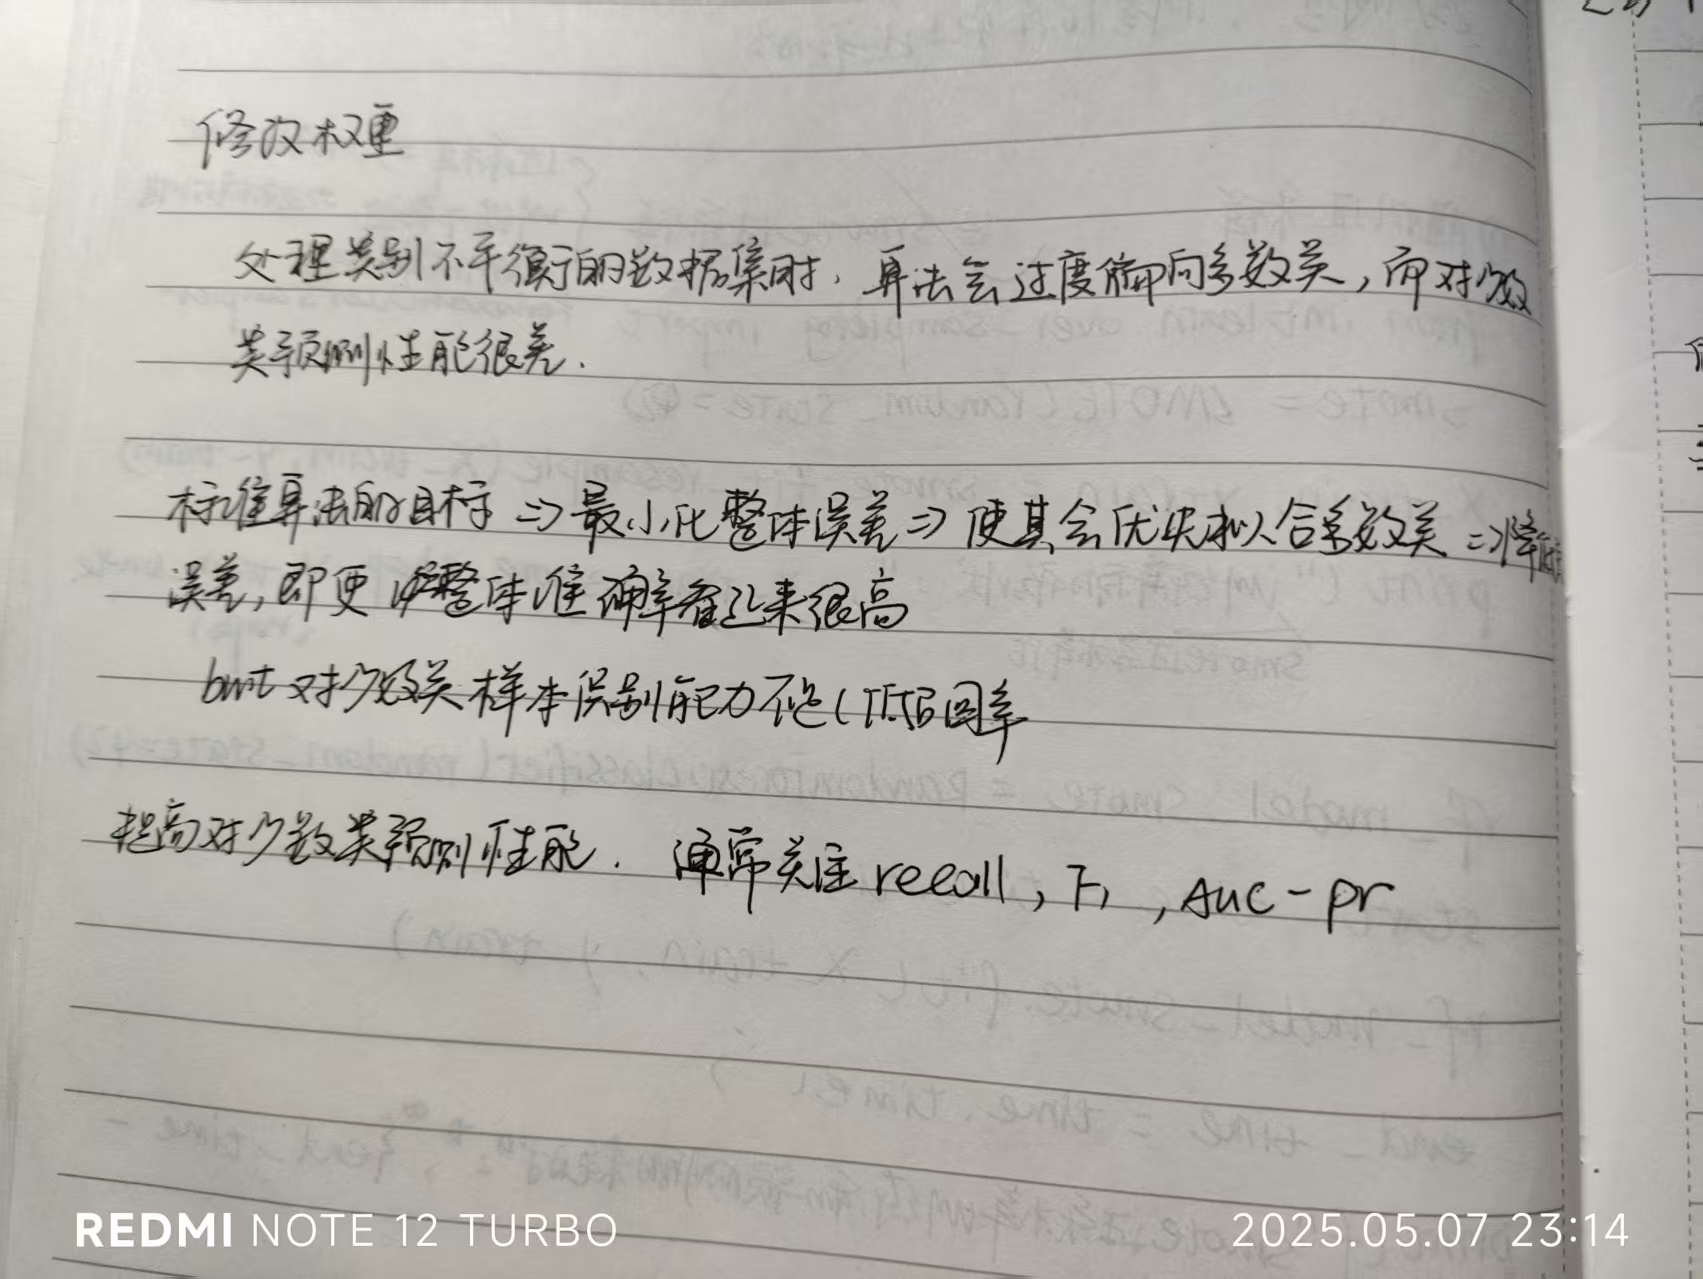 修改权重
处理类别不平衡的数据集时，算法会过度偏向多数类，而对少数
类预测性能很差.
标准算法的目标 => 最小化整体误差 => 使其会优先拟合多数类 => 降低
误差, 即便 整体准确率看起来很高
but 对少数类样本识别能力不足(低召回率
提高对少数类预测性能. 通常关注 recall, F1, AUC-pr
REDMI NOTE 12 TURBO
2025.05.07 23:14